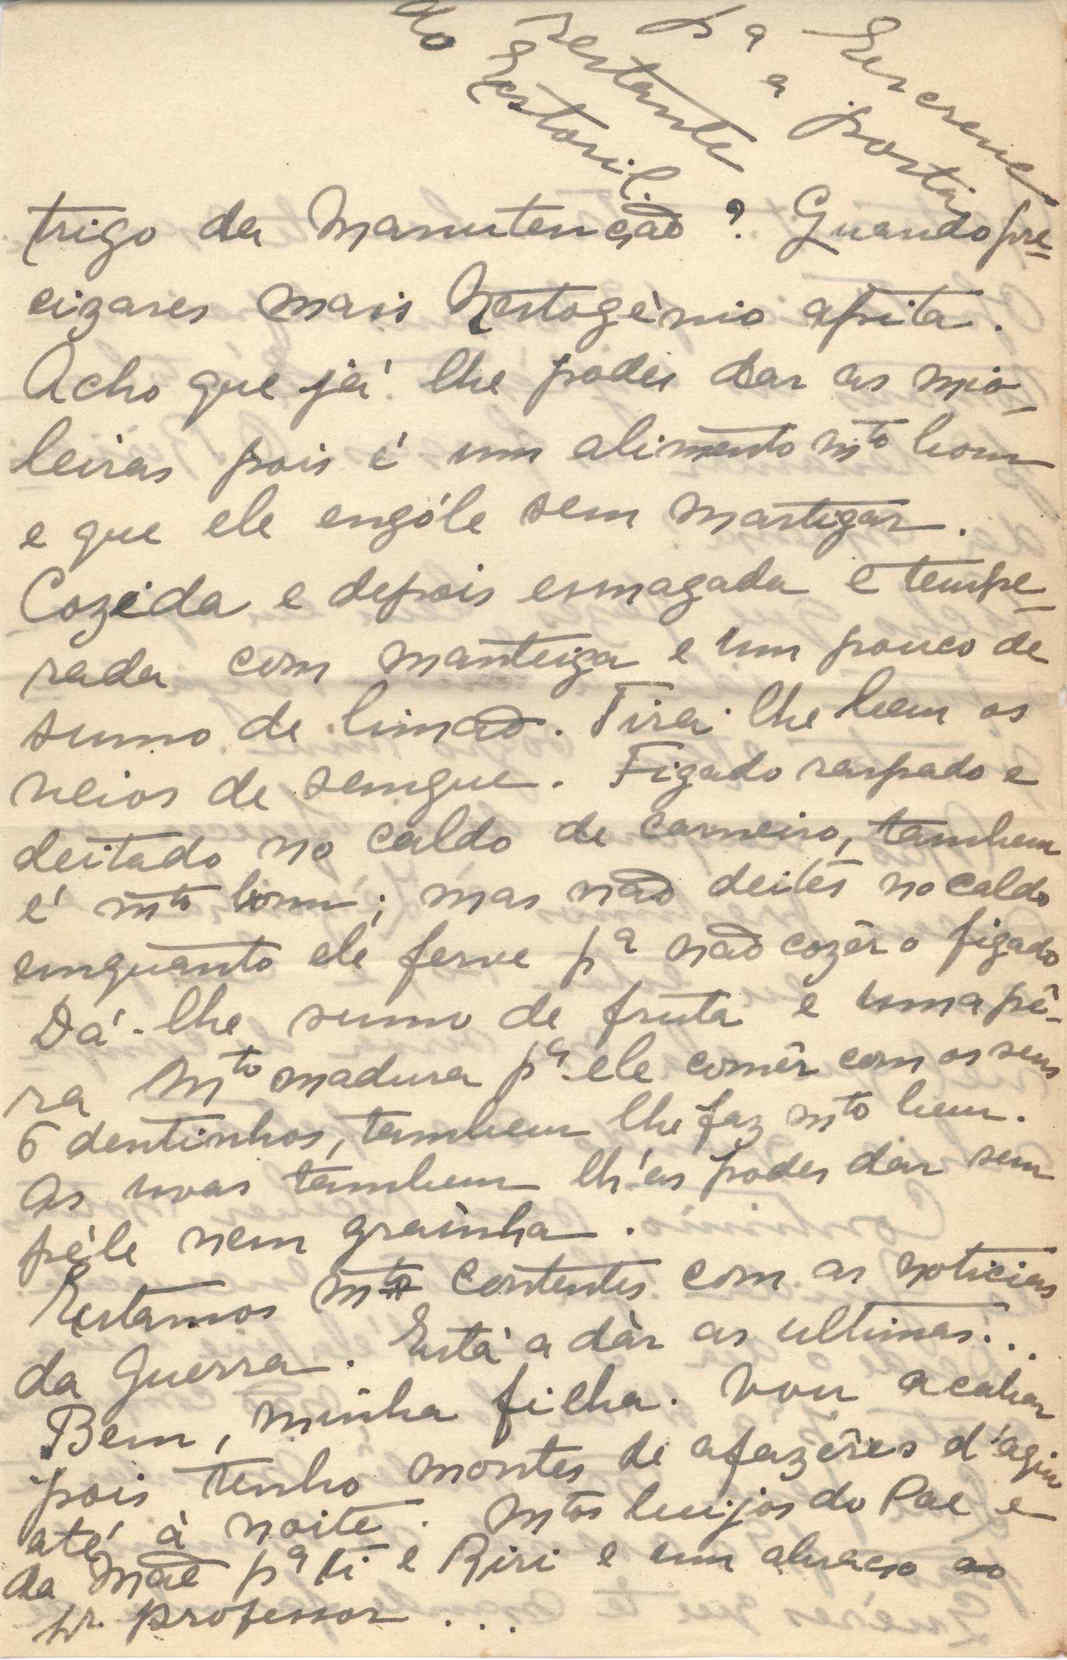 Escreve
pª a porta
restante
do Estoril.
trigo da Manutenção? Quando pre-
cizares mais Nestogènio apita.
Acho que já lhe podes dar as mio-
leiras pois é um alimento mto bom
e que ele engóle sem mastigar.
Cozida e depois esmagada e tempe-
rada com manteiga e um pouco de
sumo de limão. Tira-lhe bem os
veios de sangue. Figado raspado e
deitado no caldo de carneiro, tambem
é mto bom; mas não deites no caldo
emquanto ele ferve pª não cozêr o figado
Dá-lhe sumo de fruta e uma pê-
ra mto madura pª ele comêr com os seus
6 dentinhos, tambem lhe faz mto bem.
As uvas tambem lh'as podes dar sem
péle nem grainha.
Estamos mto contentes com as noticias
da Guerra. Está a dàr as ultimas...
Bem, minha filha. Vou acabar
pois tenho montes de afazêres d'aqui
até à noite. Mtos beijos do Pae e
da Mãe pª ti e Riri e um abraço ao
sr. professor...